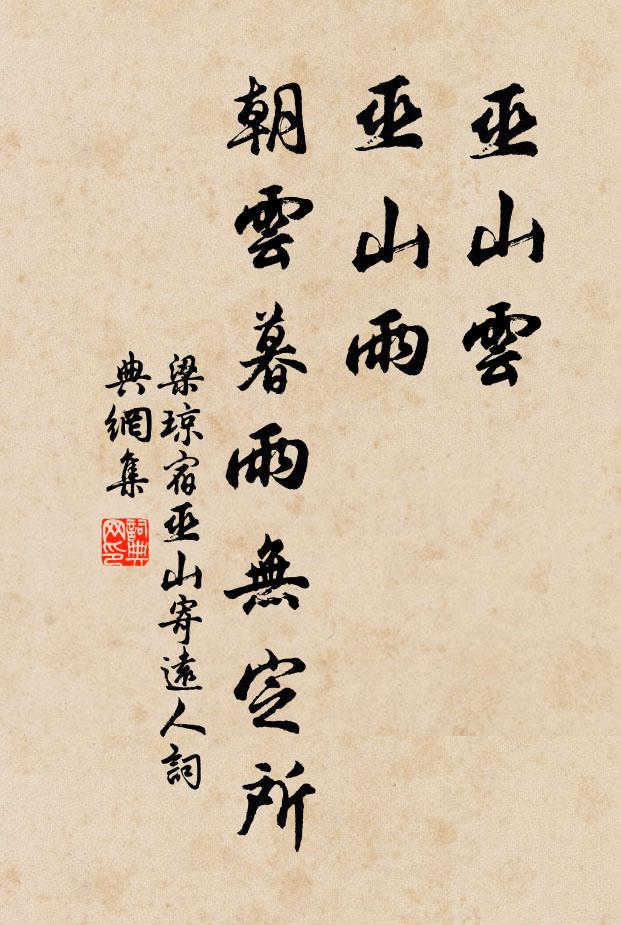 巫山雲
巫山雨
朝雲暮雨無定所
梁瓊宿巫山寄遠人詞
典網集
詞典網印